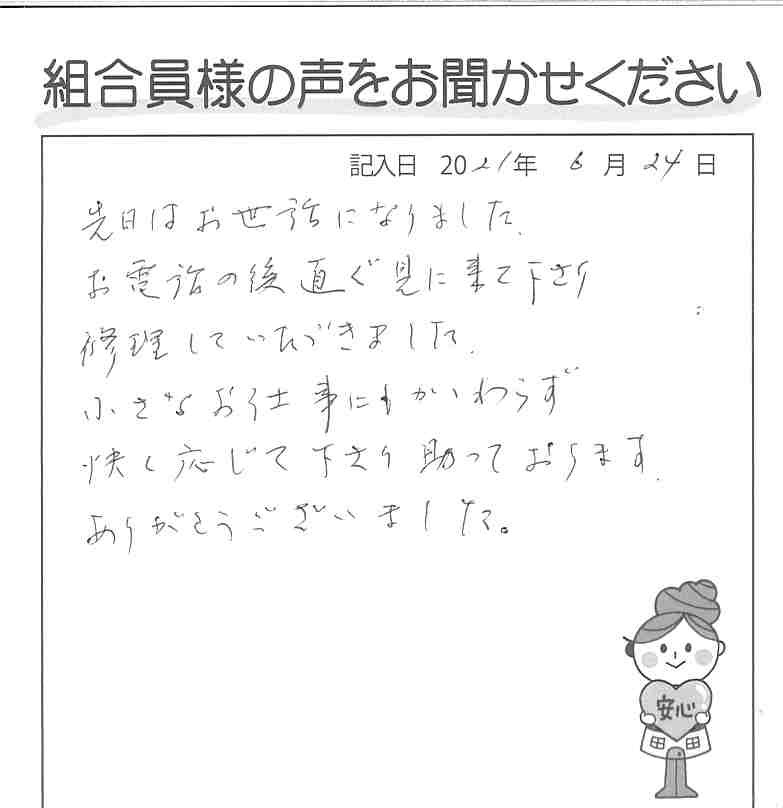 組合員様の声をお聞かせください
記入日 2021年 6月 24日
先日はお世話になりました.
お電話の後直ぐ見に来て下さり
修理していただきました.
小さなお仕事にもかゝわらず
快く応じて下さり助っております.
ありがとうございました。
安心